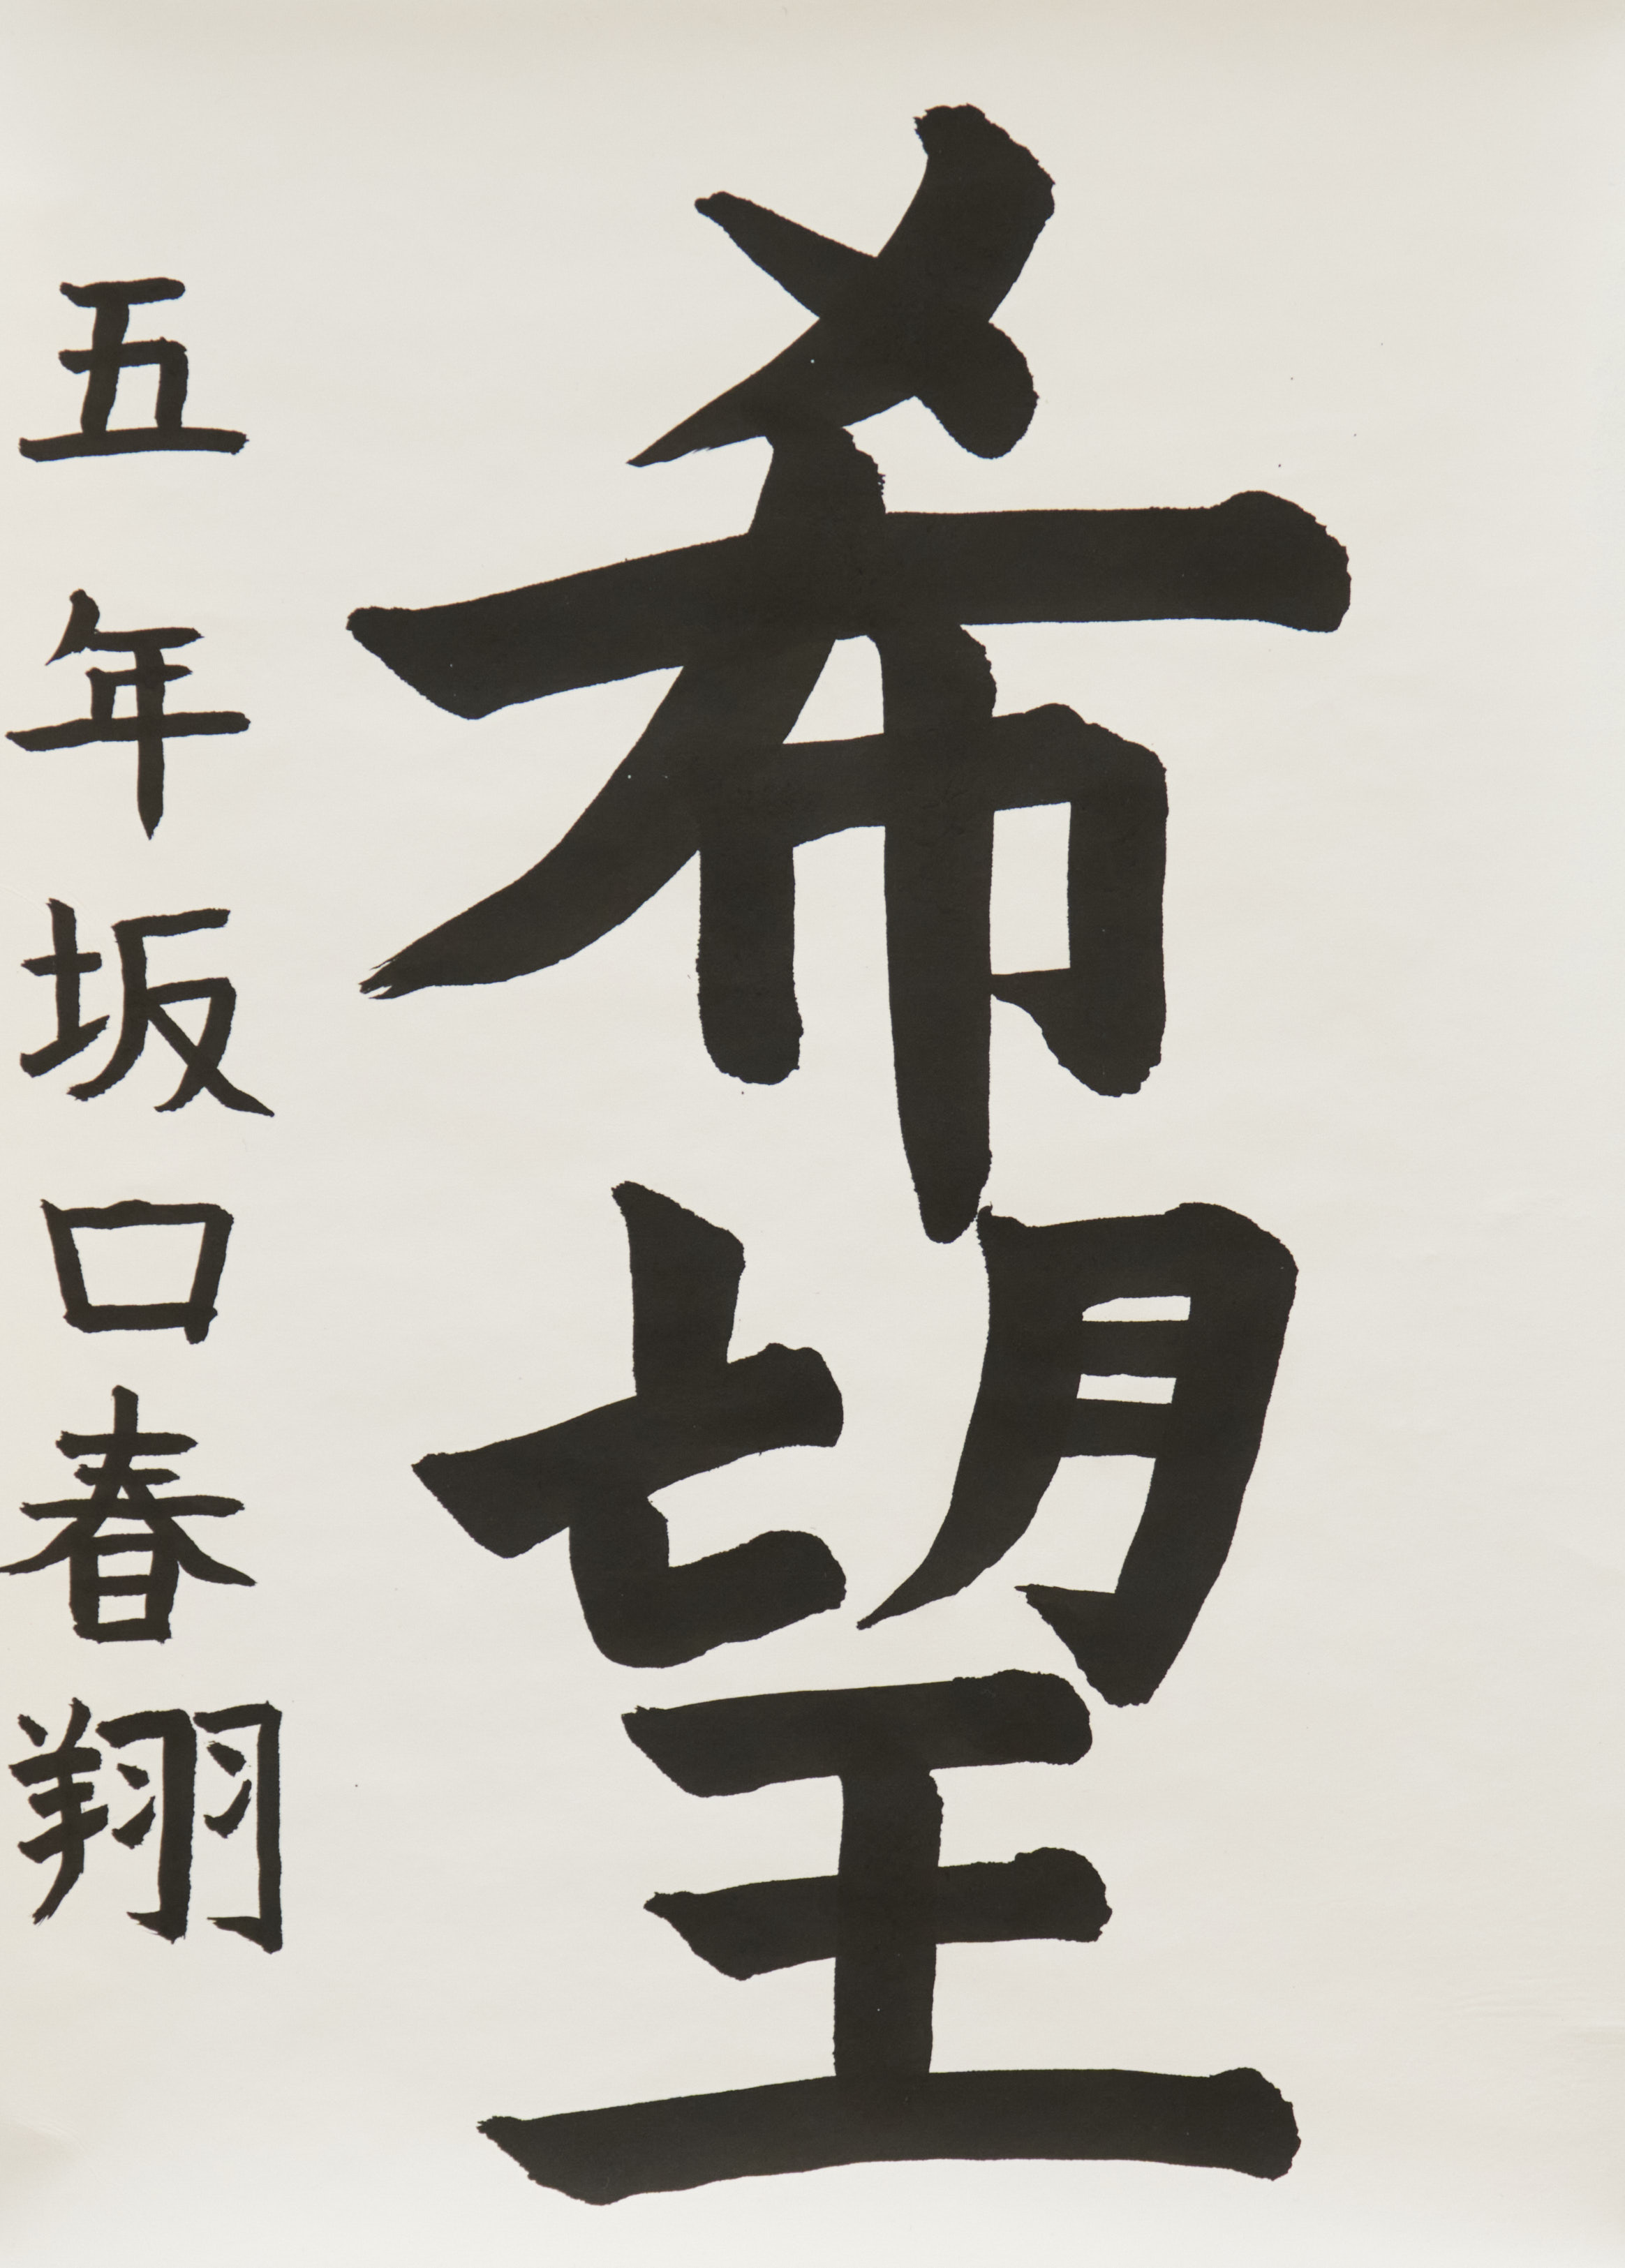 希望
五年坂口春翔